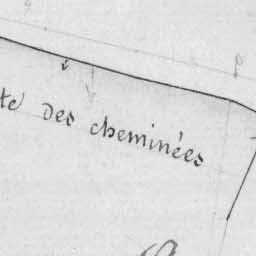 te des cheminées